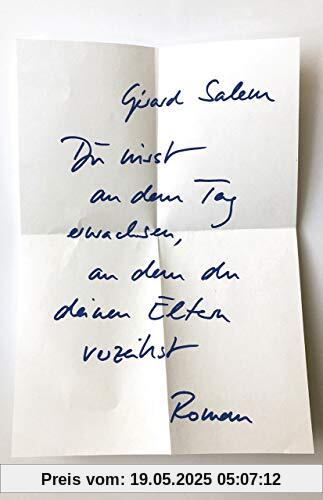 Gérard Salem
Du wirst
an dem Tag
erwachsen,
an dem du
deinen Eltern
verzeihst
Roman
Preis vom: 19.05.2025 05:07:12